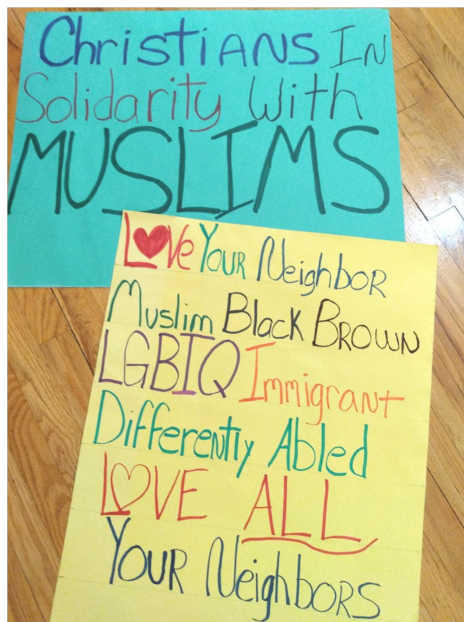 Christians In
Solidarity With
MUSLIMS
Love Your Neighbor
Muslim Black Brown
LGBTQ Immigrant
Differently Abled
LOVE ALL
Your Neighbors